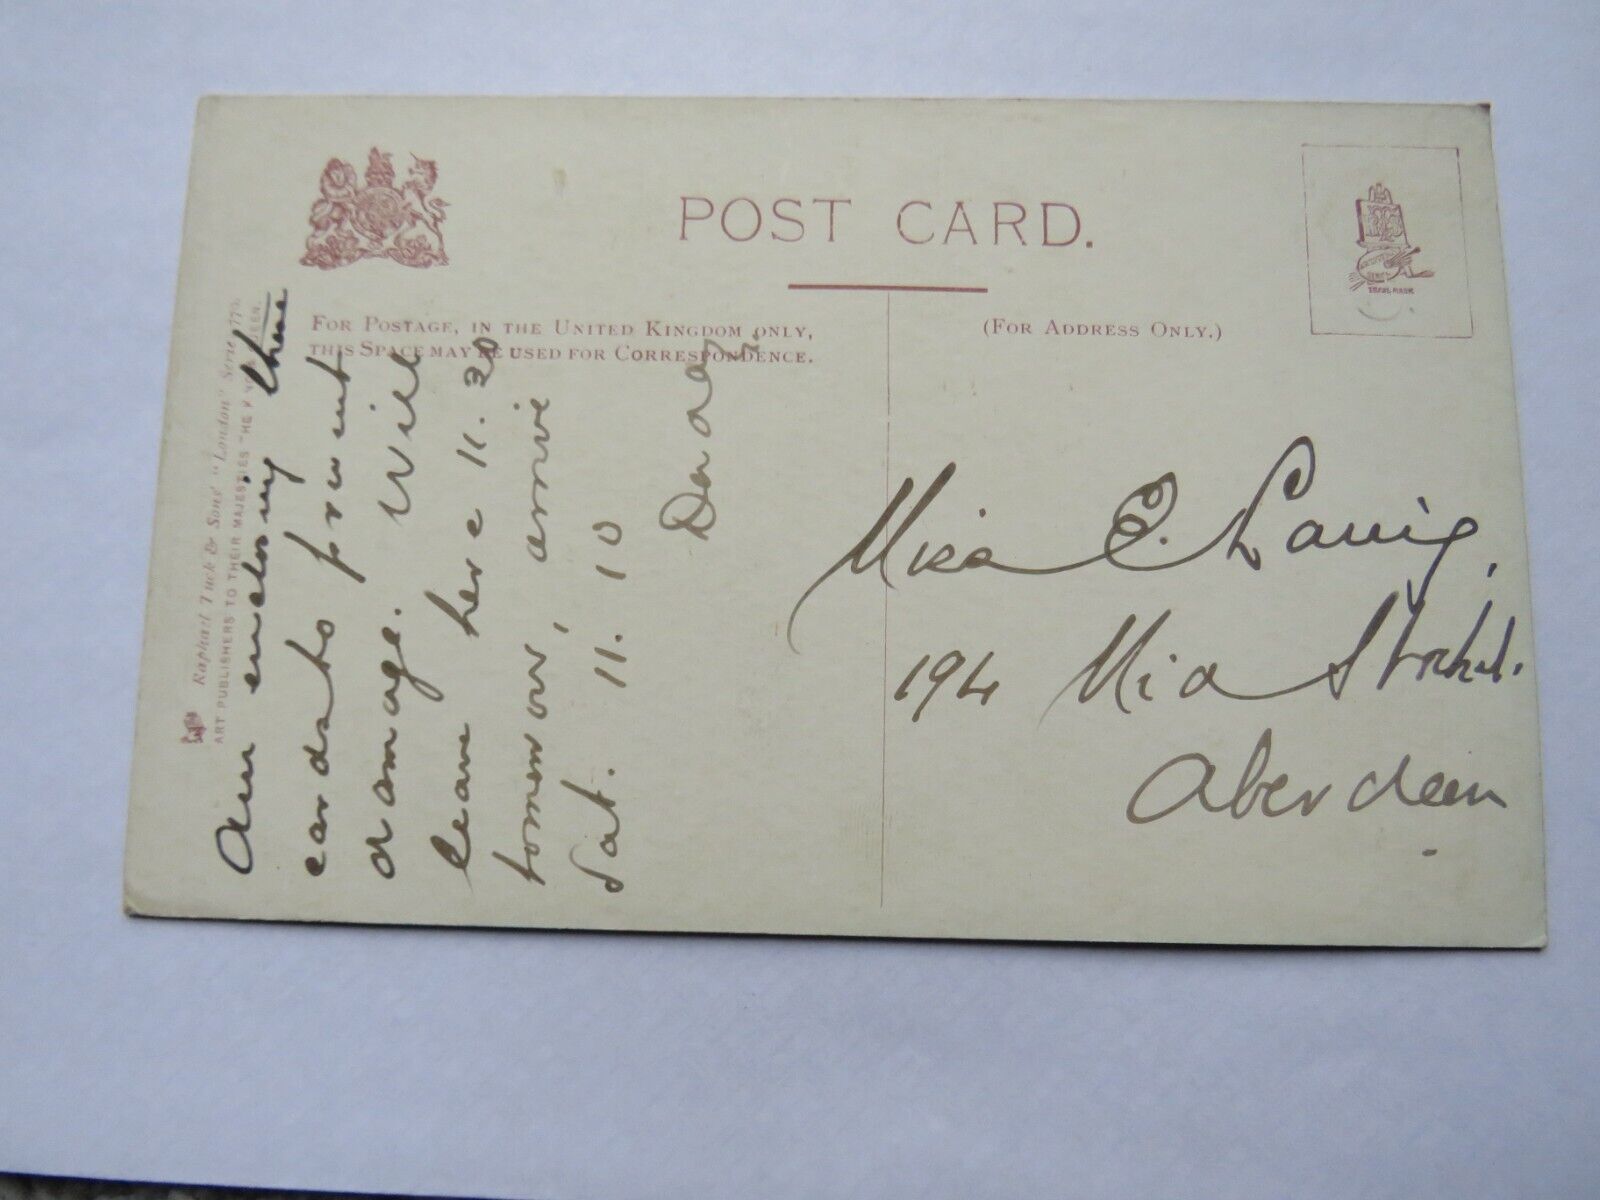 POST CARD.
FOR POSTAGE, IN THE UNITED KINGDOM ONLY,
THIS SPACE MAY BE USED FOR CORRESPONDENCE.
(FOR ADDRESS ONLY.)
TRADE MARK
Raphael Tuck & Sons' "London" Serie 775.
ART PUBLISHERS TO THEIR MAJESTIES THE KING & QUEEN.
Am enclosing these
cards to prevent
damage. Will
leave here 11.20
tomorrow, arrive
Sat. 11.10
Miss E.
194
Aberdeen